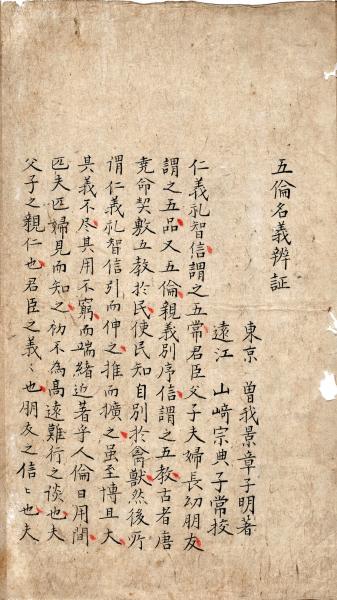 五倫名義辨証
東京 曽我景章子明著
遠江 山﨑宗典子常挍
仁義礼智信謂之五常君臣父子夫婦長幼朋友
謂之五品又五倫親義別序信謂之五教古者唐
堯命契敷五教於民使民知自別於禽獣然後所
謂仁義礼智信引而伸之推而擴之虽至博且大
其義不尽其用不窮而端緒近著乎人倫日用間
匹夫匹婦見而知之初不為高遠難行之談也夫
父子之親仁也君臣之義〻也朋友之信〻也夫